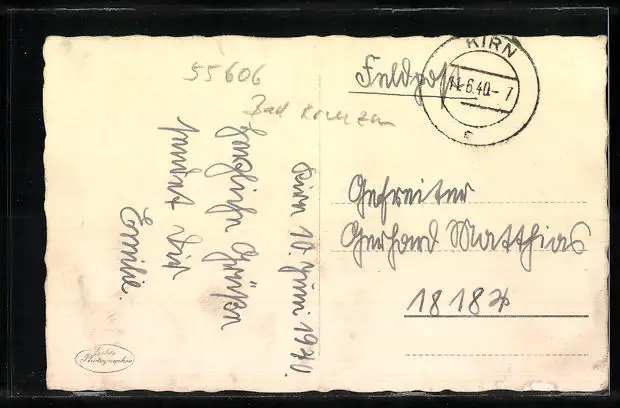 55606
Bad Kreuzn
Kirn 10. Juni 1940.
Herzliche Grüße
sendet Dir
Emilie.
Feldpost
KIRN
11.6.40.-7
c
Gefreiter
Gerhard Matthias
18184
Echte
Photographie